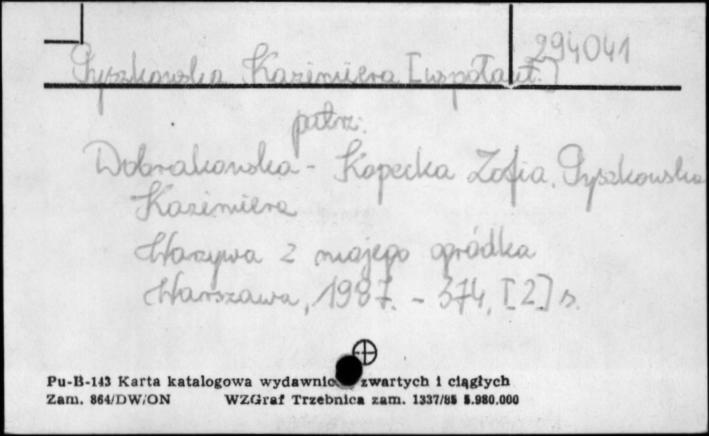 294041
Pyszkowska Kazimiera [współaut.]
patrz:
Dobrakowska-Kopecka Zofia, Pyszkowska
Kazimiera
Warzywa z mojego ogródka
Warszawa, 1987. - 374, [2] s.
Pu-B-143 Karta katalogowa wydawnic zwartych i ciągłych
Zam. 864/DW/ON WZGraf Trzebnica zam. 1337/85 5.980.000